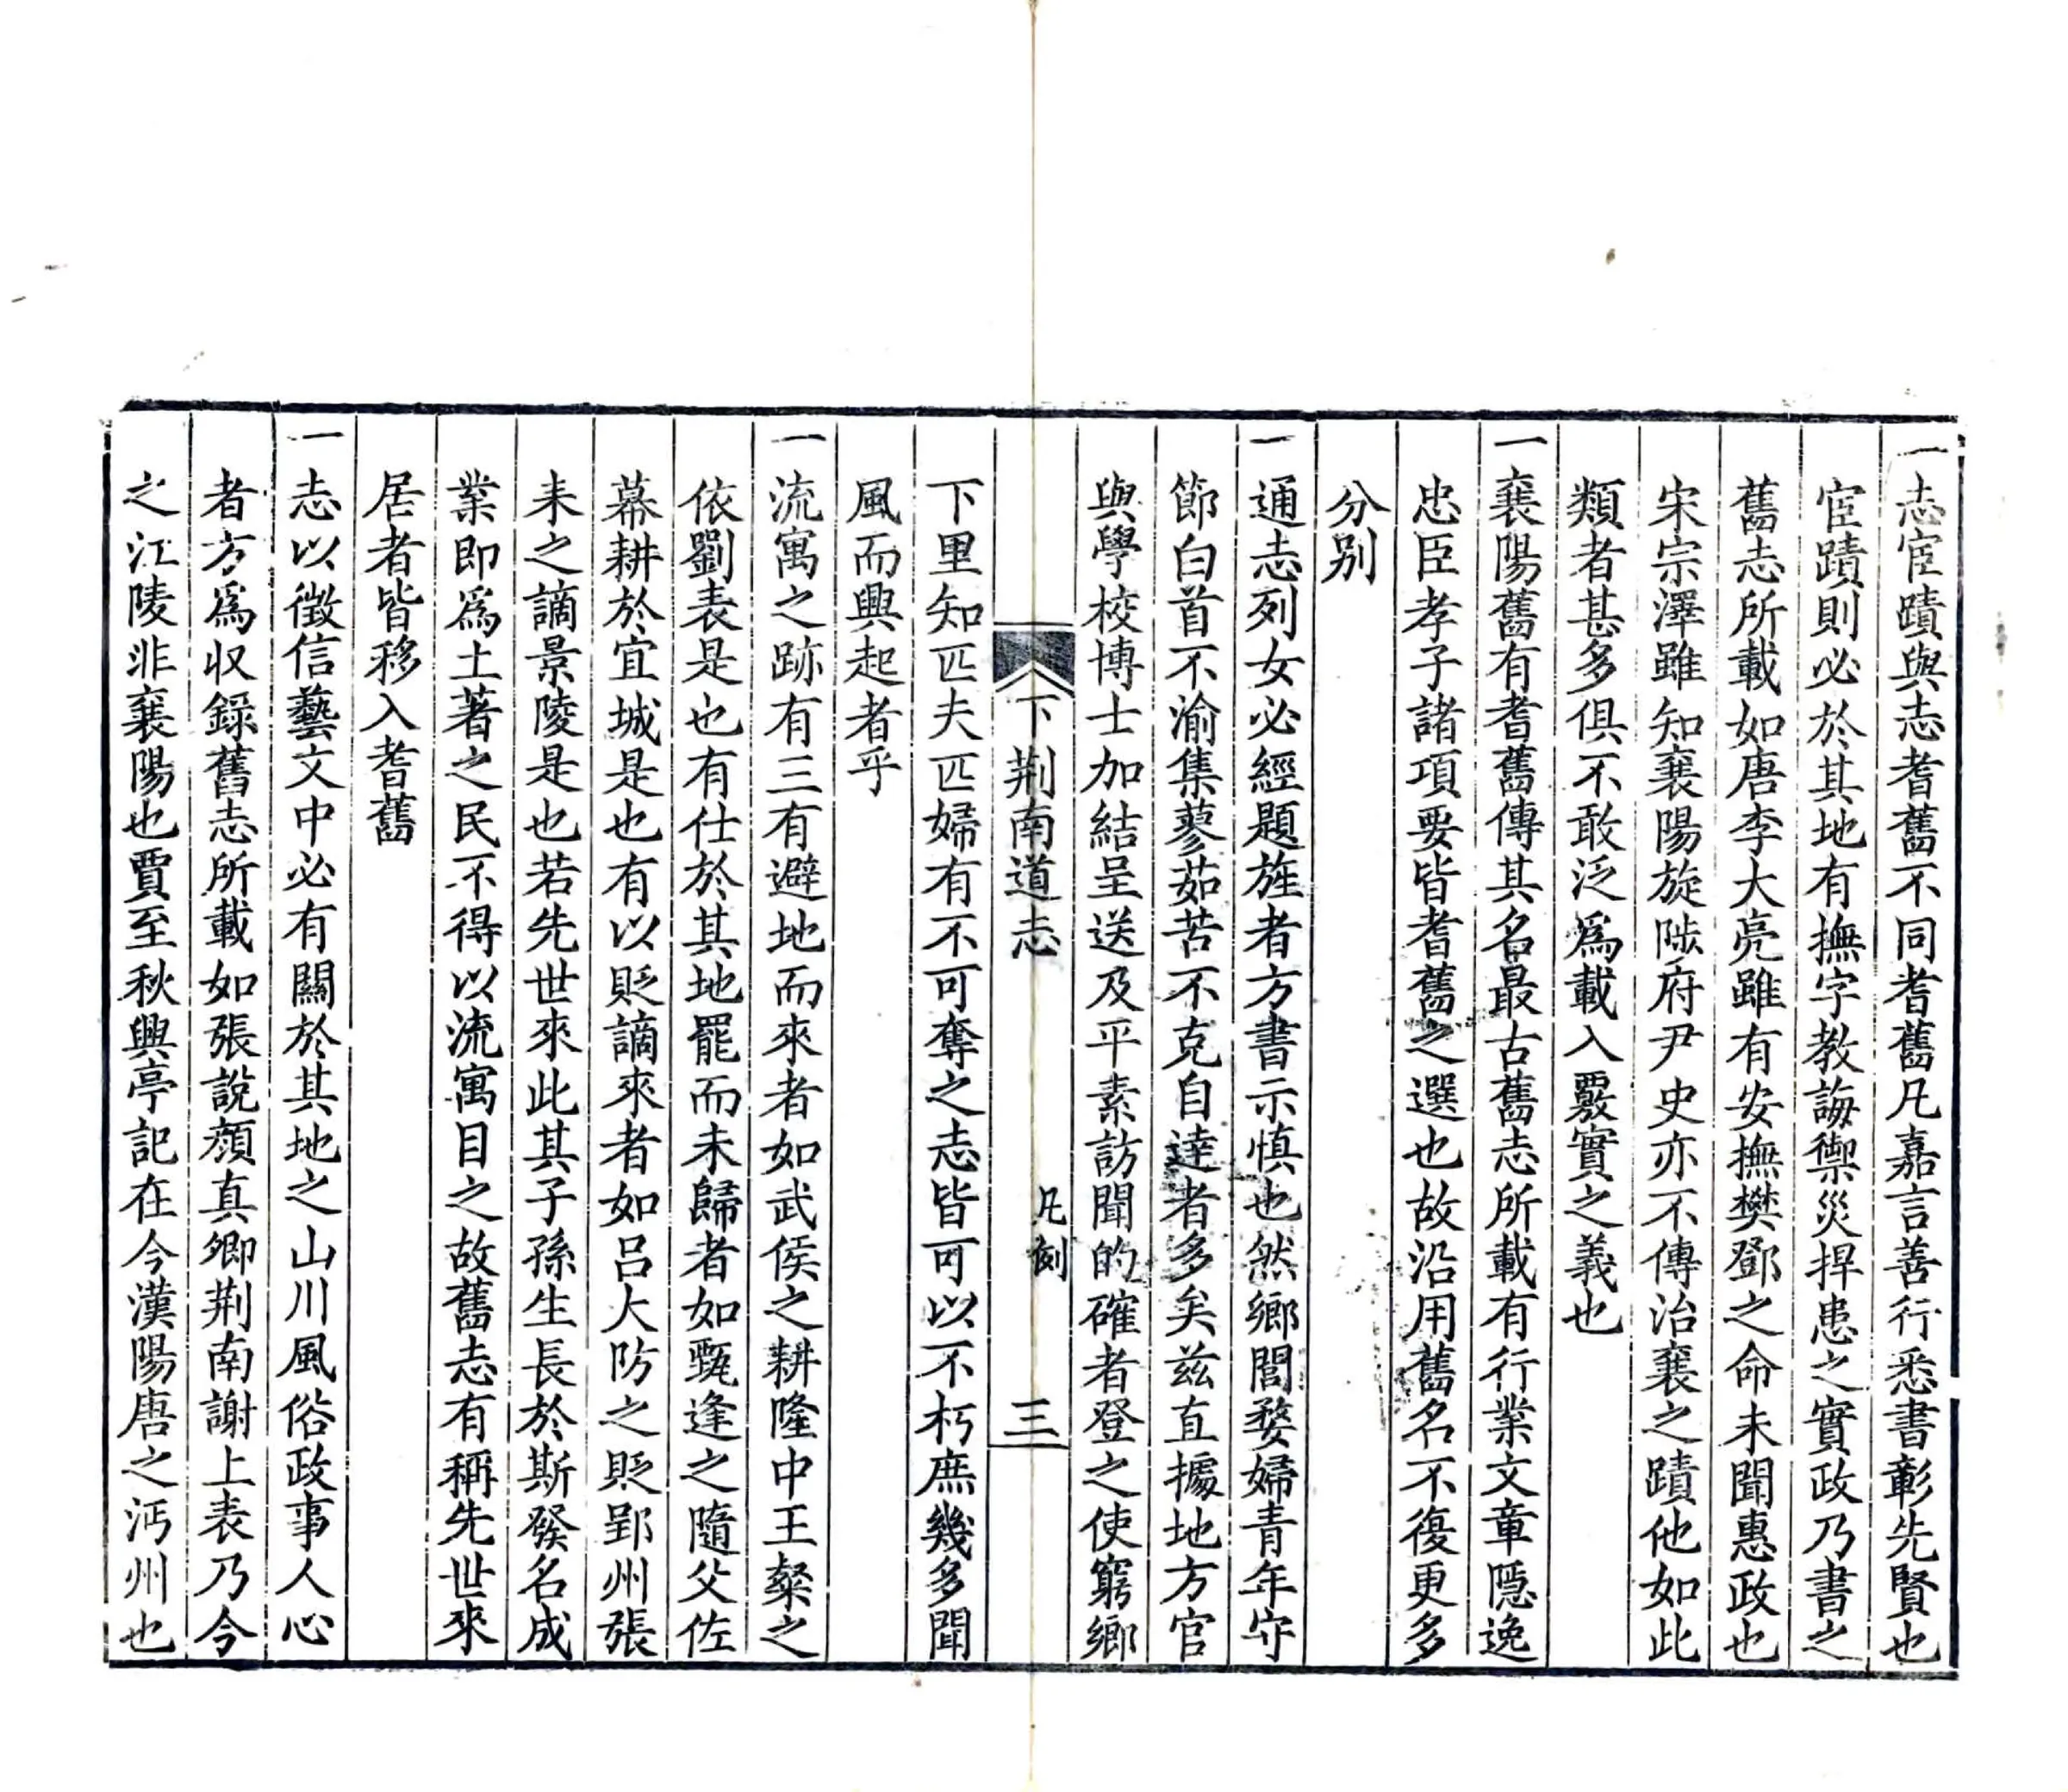 一志宦蹟與志耆舊不同耆舊凡嘉言善行悉書彰先賢也
宦蹟則必於其地有撫字教誨禦災捍患之實政乃書之
舊志所載如唐李大亮雖有安撫樊鄧之命未聞惠政也
宋宗澤雖知襄陽旋陟府尹史亦不傳治襄之蹟他如此
類者甚多俱不敢泛爲載入覈實之義也
一襄陽舊有耆舊傳其名最古舊志所載有行業文章隠逸
忠臣孝子諸項要皆耆舊之選也故沿用舊名不復更多
分别
一通志列女必經題旌者方書示慎也然鄉閭嫠婦青年守
節白首不渝集蓼茹苦不克自達者多矣兹直據地方官
與學校博士加結呈送及平素訪聞的確者登之使窮鄉
下荆南道志
凡例
三
下里知匹夫匹婦有不可奪之志皆可以不朽庶幾多聞
風而興起者乎
一流寓之跡有三有避地而來者如武侯之耕隆中王粲之
依劉表是也有仕於其地罷而未歸者如甄逢之隨父佐
幕耕於宜城是也有以貶謫來者如呂大防之貶郢州張
耒之謫景陵是也若先世來此其子孫生長於斯發名成
業即爲土著之民不得以流寓目之故舊志有稱先世來
居者皆移入耆舊
一志以徵信藝文中必有關於其地之山川風俗政事人心
者方爲収錄舊志所載如張說顏真卿荆南謝上表乃今
之江陵非襄陽也賈至秋興亭記在今漢陽唐之沔州也